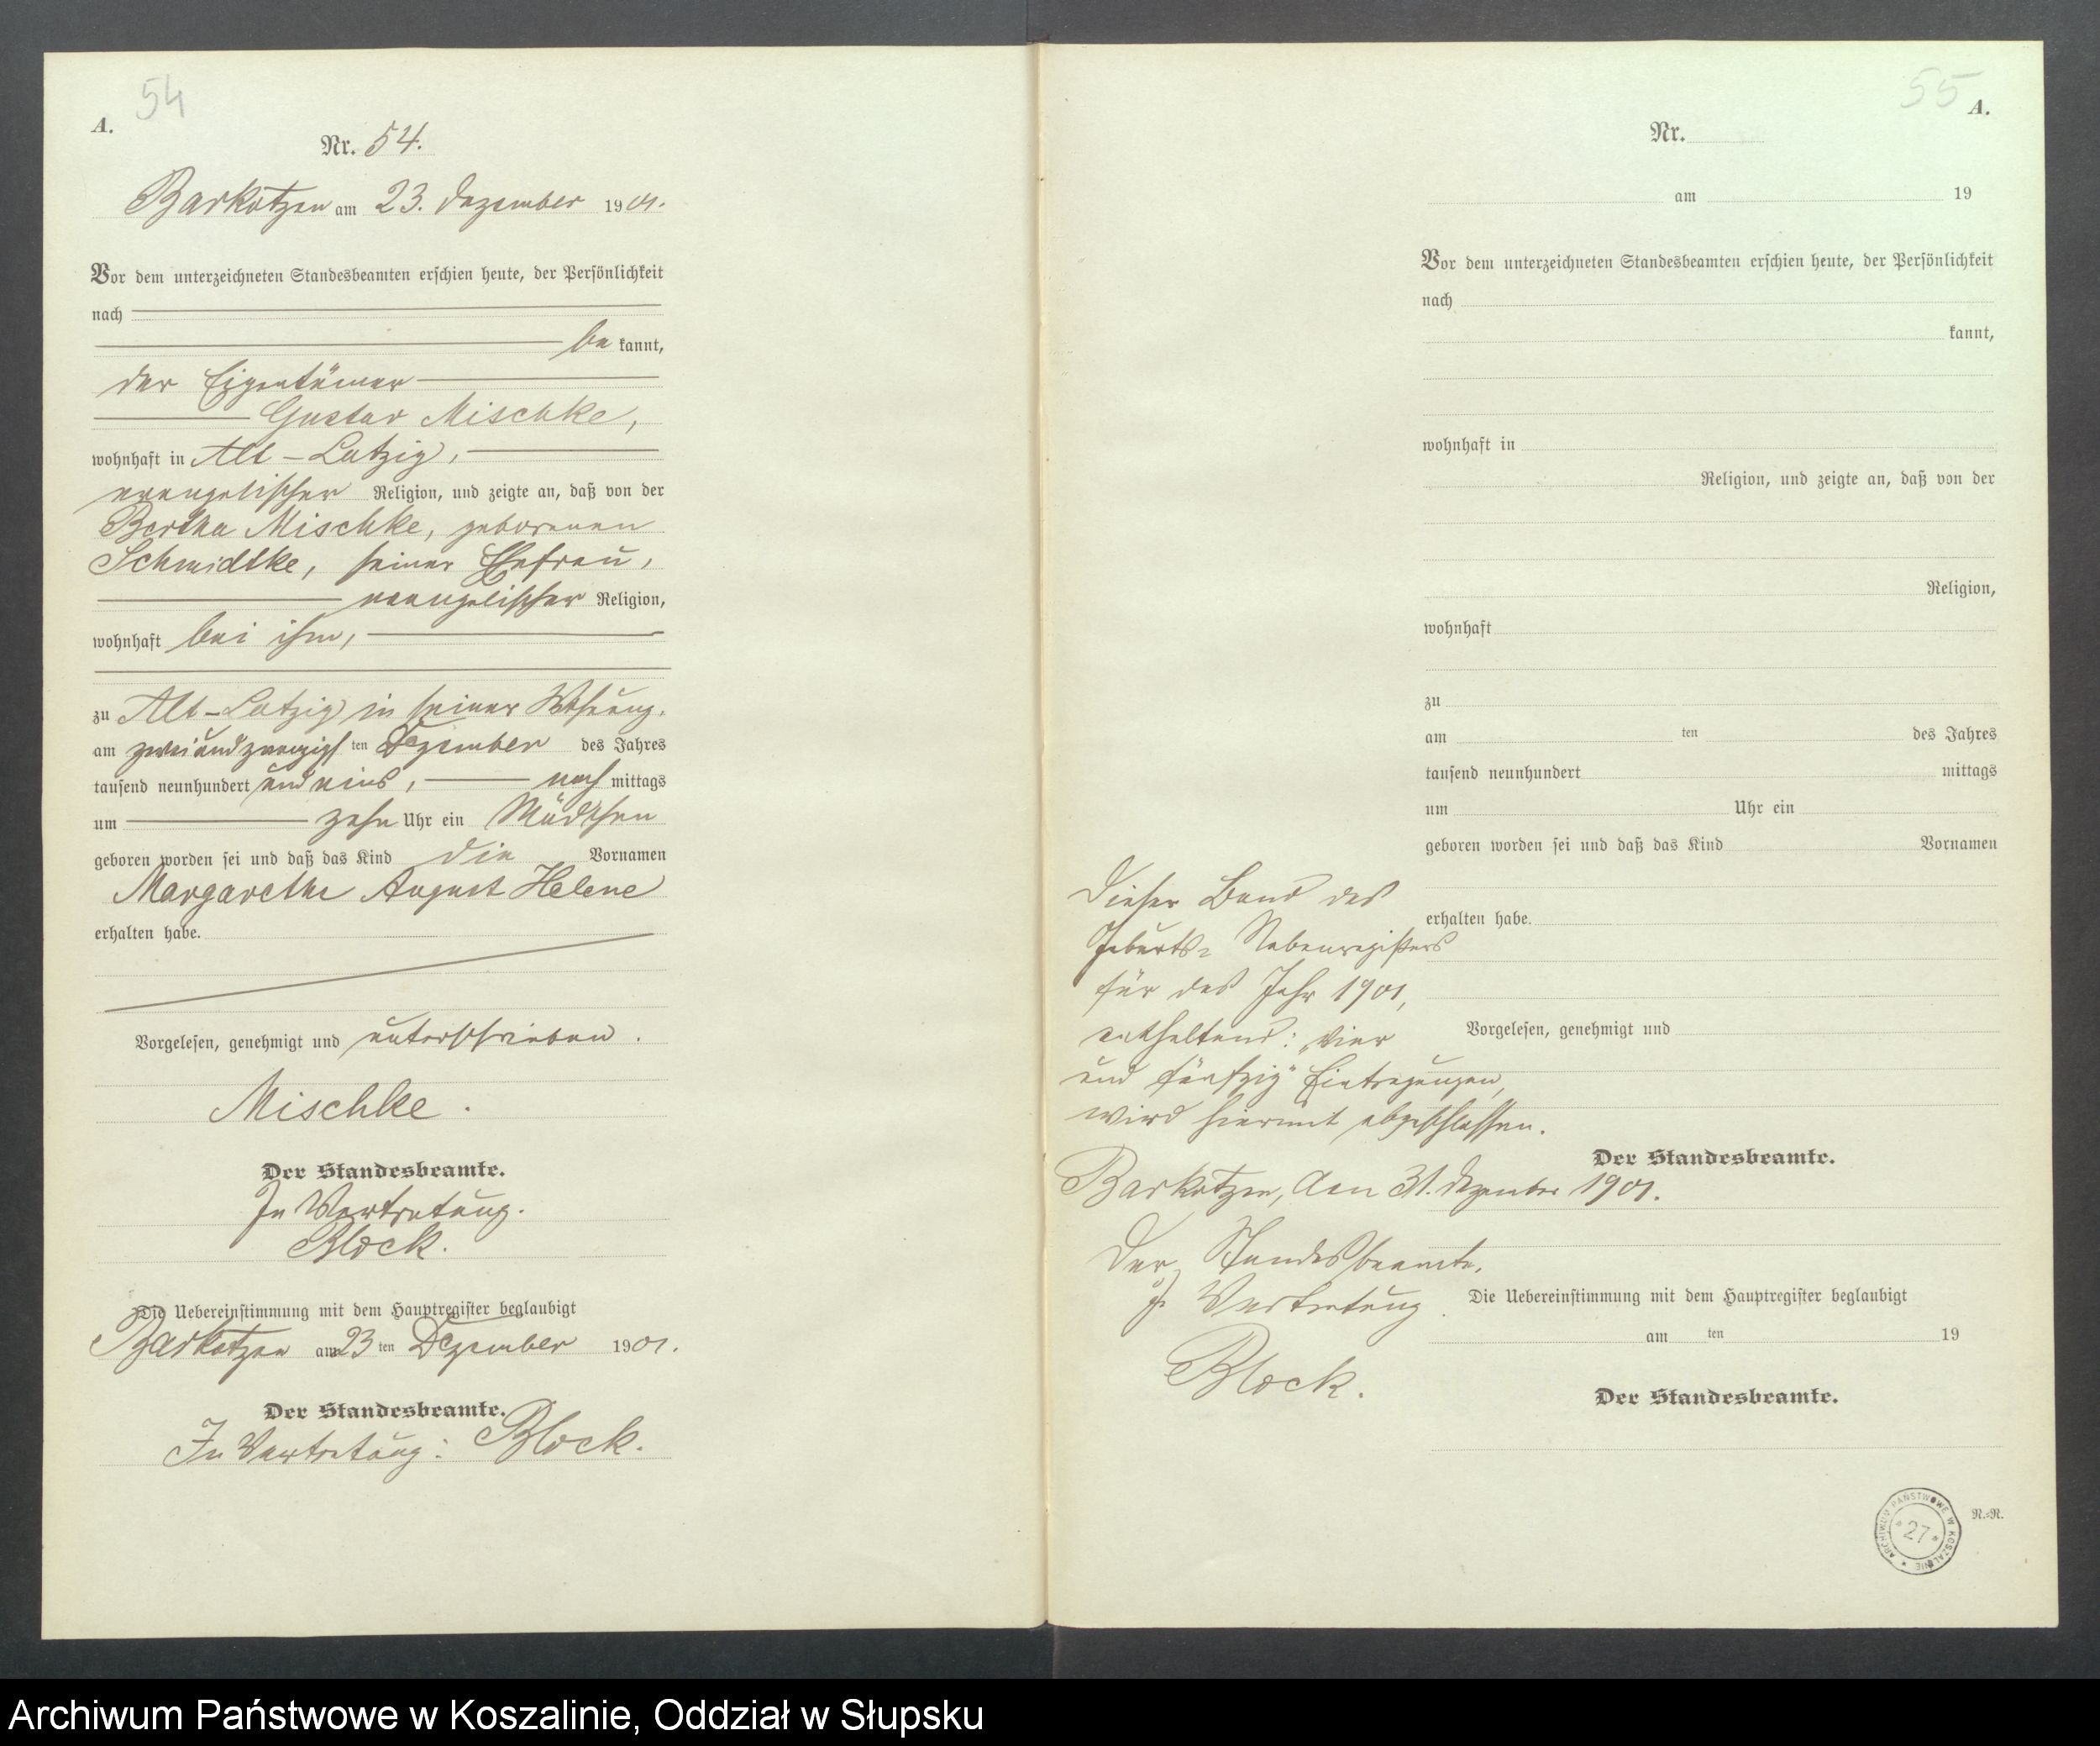 54
A.
Nr. 54.
Barkotzen am 23. Dezember 1901.
Vor dem unterzeichneten Standesbeamten erschien heute, der Persönlichkeit
nach
be kannt,
der Eigentümer
Gustav Mischke,
wohnhaft in Alt-Latzig,
evangelischer Religion, und zeigte an, daß von der
Bertha Mischke, geborenen
Schmidtke, seiner Ehefrau,
evangelischer Religion,
wohnhaft bei ihm,
zu Alt-Latzig in seiner Wohnung,
am zweiundzwanzigsten Dezember des Jahres
tausend neunhundert und eins, nach mittags
um zehn Uhr ein Mädchen
geboren worden sei und daß das Kind die Vornamen
Margarethe August Helene
erhalten habe.
Vorgelesen, genehmigt und unterschrieben.
Mischke.
Der Standesbeamte.
In Vertretung.
Block.
Die Uebereinstimmung mit dem Hauptregister beglaubigt
Barkotzen am 23 ten Dezember 1901.
Der Standesbeamte.
In Vertretung: Block.
55
A.
Nr.
am 19
Vor dem unterzeichneten Standesbeamten erschien heute, der Persönlichkeit
nach
kannt,
wohnhaft in
Religion, und zeigte an, daß von der
Religion,
wohnhaft
zu
am ten des Jahres
tausend neunhundert mittags
um Uhr ein
geboren worden sei und daß das Kind Vornamen
erhalten habe.
Vorgelesen, genehmigt und
Der Standesbeamte.
Die Uebereinstimmung mit dem Hauptregister beglaubigt
am ten 19
Der Standesbeamte.
Dieser Band des
Geburts-Nebenregisters
für das Jahr 1901,
enthaltend: „vier
und fünfzig" Eintragungen,
wird hiermit abgeschlossen.
Barkotzen, den 31. Dezember 1901.
Der Standesbeamte.
In Vertretung.
Block.
ARCHIWUM PAŃSTWOWE W KOSZALINIE
* 27 *
N.=R.
Archiwum Państwowe w Koszalinie, Oddział w Słupsku